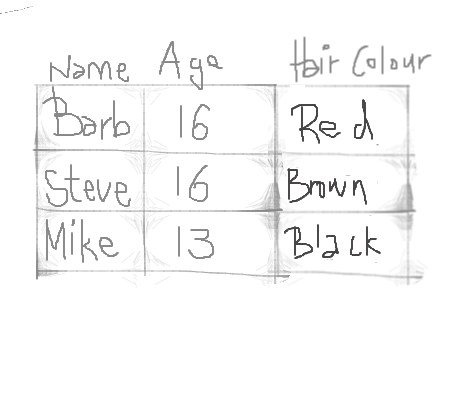 Name Age Hair Colour
Barb 16 Red
Steve 16 Brown
Mike 13 Black